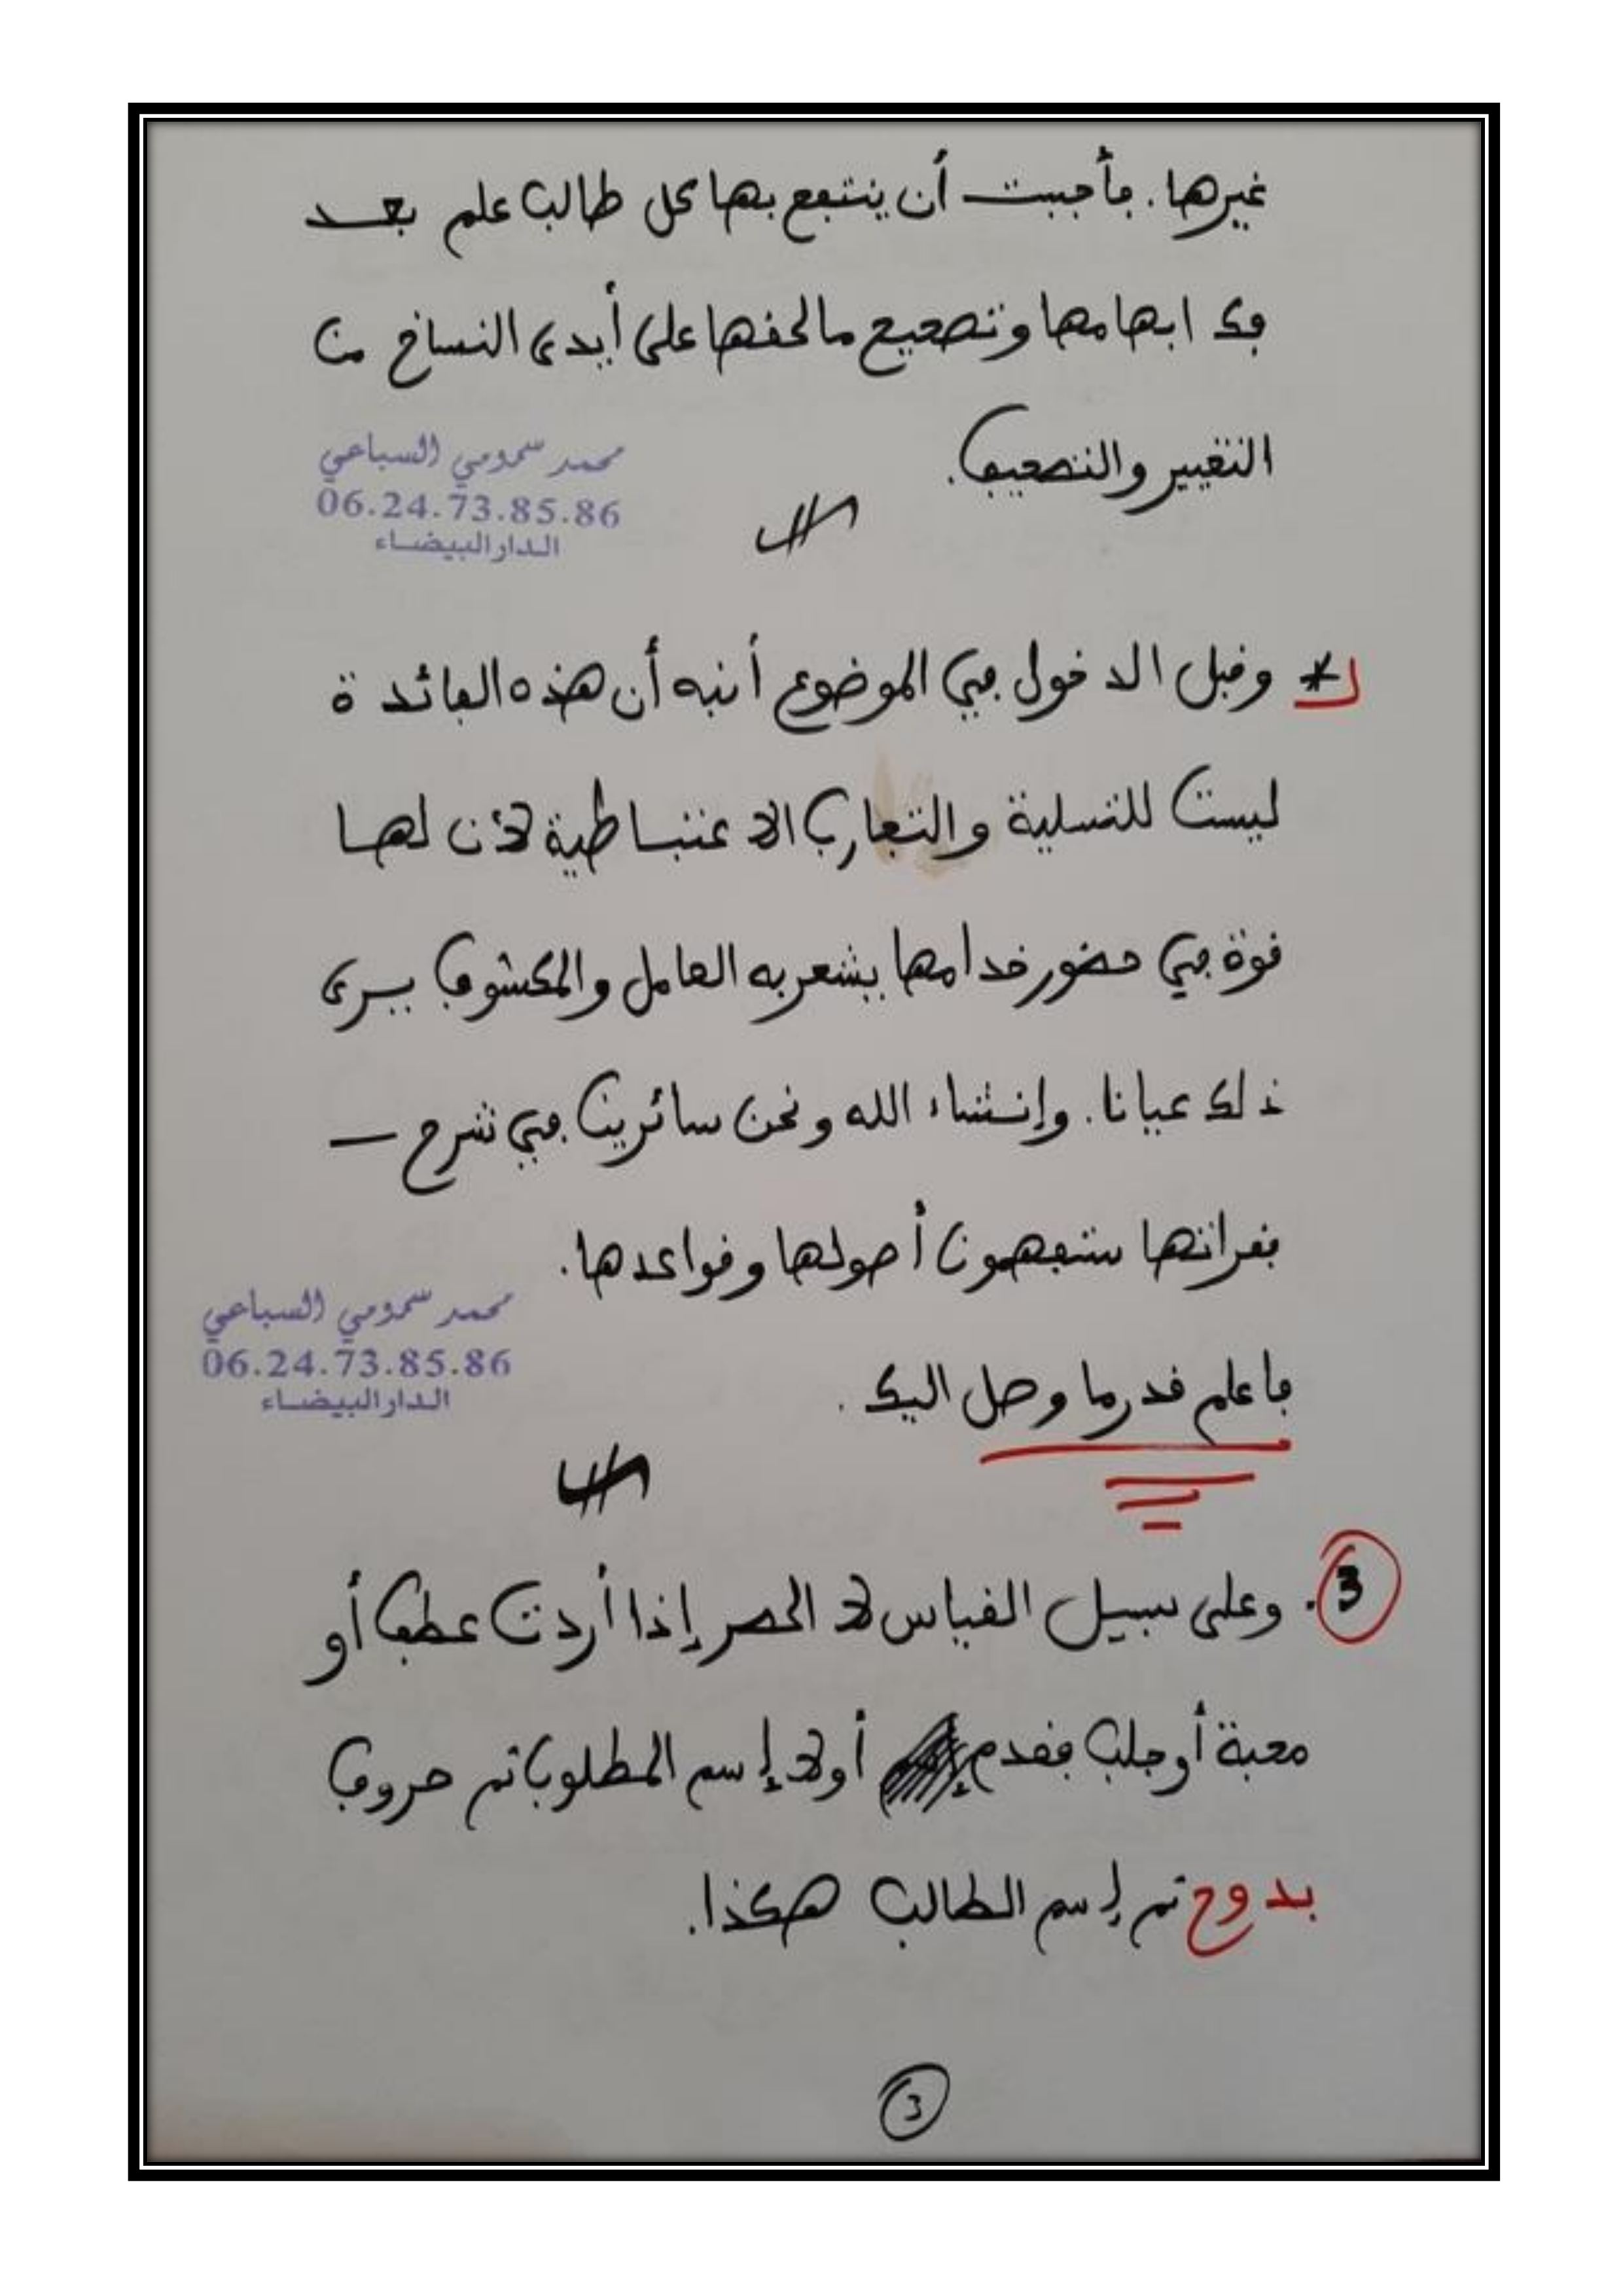 غيرها. فأحببت أن ينتفع بها كل طالب علم بعد
فك ابهامها وتصحيح مالحقها على أيدي النساخ من
التغيير والتصحيف.
محمد سمومي السباعي
06.24.73.85.86
الدار البيضاء
* وقبل الدخول في الموضوع أنبه أن هذه الفائدة
ليست للتسلية والتجارب الاعتباطية لأن لها
قوة في حضور خدامها يشعر به العامل والمكشوف يرى
ذلك عيانا. وإنشاء الله ونحن سائرين في شرح
فقراتها ستفهمون أصولها وقواعدها.
محمد سمومي السباعي
06.24.73.85.86
الدار البيضاء
فاعلم قدر ما وصل اليك.
3. وعلى سبيل القياس لا الحصر إذا أردت عطف أو
محبة أو جلب فقدم أولا إسم المطلوب ثم حروف
بدوح ثم إسم الطالب هكذا.
3